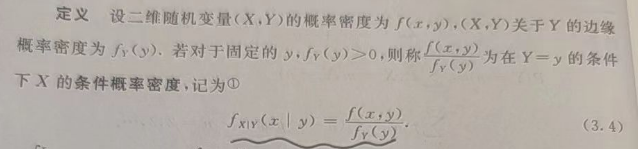 定义 设二维随机变量(X,Y)的概率密度为 f(x,y),(X,Y)关于 Y 的边缘
概率密度为 f_Y(y). 若对于固定的 y, f_Y(y)>0,则称 f(x,y)/f_Y(y) 为在 Y=y 的条件
下 X 的条件概率密度,记为①
f_{X|Y}(x|y) = f(x,y)/f_Y(y). (3.4)